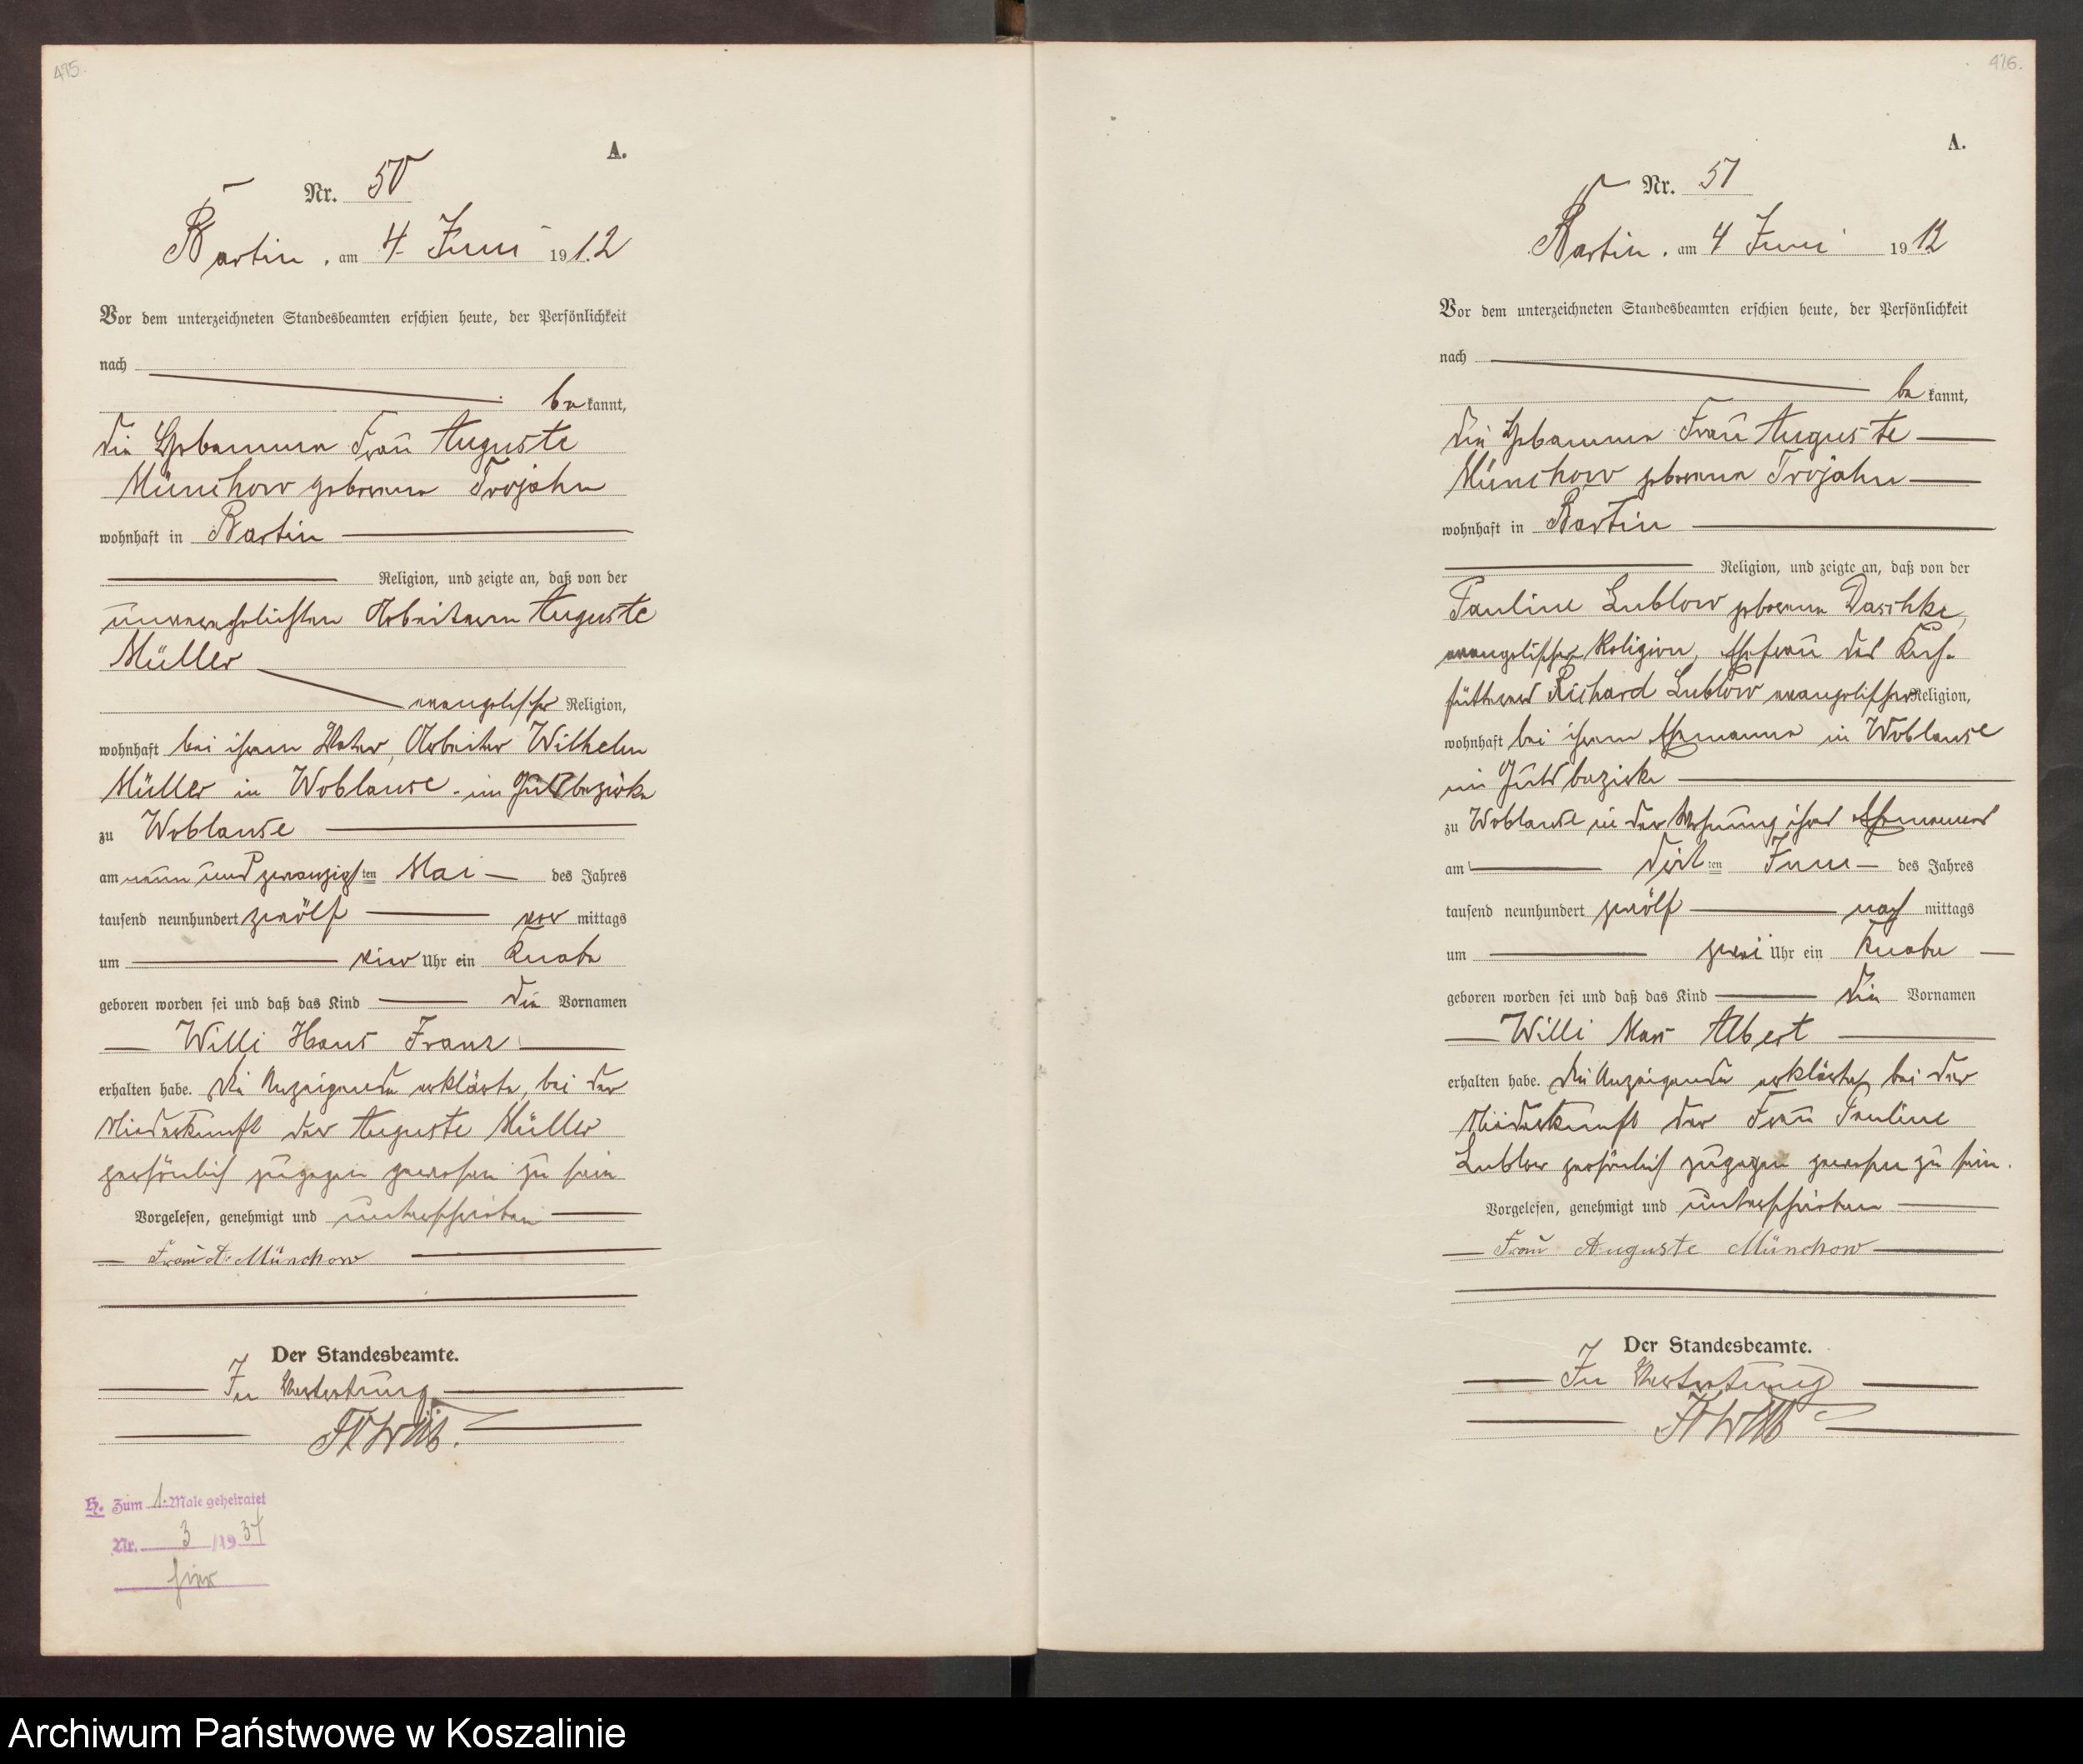 475.
A.
Nr. 50
Bartin, am 4. Juni 1912
Vor dem unterzeichneten Standesbeamten erschien heute, der Persönlichkeit
nach
bekannt,
die Hebamme Frau Auguste
Münchow geborene Trojahn
wohnhaft in Bartin
Religion, und zeigte an, daß von der
unverehelichten Arbeiterin Auguste
Müller
evangelischer Religion,
wohnhaft bei ihrem Vater, Arbeiter Wilhelm
Müller in Woblanse im Gutsbezirke
zu Woblanse
am neun und zwanzigsten Mai des Jahres
tausend neunhundert zwölf vormittags
um vier Uhr ein Knabe
geboren worden sei und daß das Kind die Vornamen
Willi Hans Franz
erhalten habe. Die Anzeigende erklärte, bei der
Niederkunft der Auguste Müller
persönlich zugegen gewesen zu sein
Vorgelesen, genehmigt und unterschrieben
Frau A. Münchow
Der Standesbeamte.
In Vertretung
H. Zum 1. Male geheiratet
Nr. 3/1937
hier
476.
A.
Nr. 51
Bartin, am 4 Juni 1912
Vor dem unterzeichneten Standesbeamten erschien heute, der Persönlichkeit
nach
bekannt,
die Hebamme Frau Auguste
Münchow geborene Trojahn
wohnhaft in Bartin
Religion, und zeigte an, daß von der
Pauline Lublow geborene Daschke,
evangelischer Religion, Ehefrau des Kuh-
fütterers Richard Lublow evangelischer Religion,
wohnhaft bei ihrem Ehemanne in Woblanse
im Gutsbezirke
zu Woblanse in der Wohnung ihres Ehemannes
am ten Juni des Jahres
tausend neunhundert zwölf nachmittags
um zwei Uhr ein Knabe
geboren worden sei und daß das Kind die Vornamen
Willi Max Albert
erhalten habe. Die Anzeigende erklärte, bei der
Niederkunft der Frau Pauline
Lublow persönlich zugegen gewesen zu sein.
Vorgelesen, genehmigt und unterschrieben
Frau Auguste Münchow
Der Standesbeamte.
In Vertretung
Archiwum Państwowe w Koszalinie